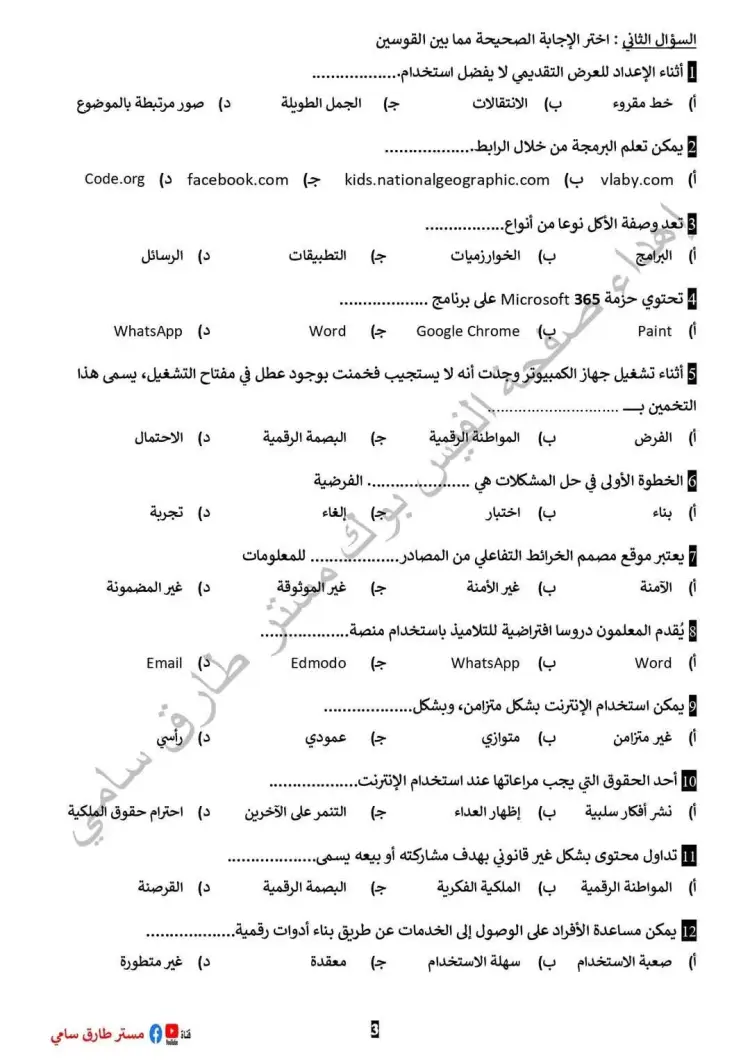 السؤال الثاني : اختر الإجابة الصحيحة مما بين القوسين
1 أثناء الإعداد للعرض التقديمي لا يفضل استخدام...................
أ) خط مقروء ب) الانتقالات جـ) الجمل الطويلة د) صور مرتبطة بالموضوع
2 يمكن تعلم البرمجة من خلال الرابط...................
أ) vlaby.com ب) kids.nationalgeographic.com جـ) facebook.com د) Code.org
3 تعد وصفة الأكل نوعا من أنواع.................
أ) البرامج ب) الخوارزميات جـ) التطبيقات د) الرسائل
4 تحتوي حزمة Microsoft 365 على برنامج ...................
أ) Paint ب) Google Chrome جـ) Word د) WhatsApp
5 أثناء تشغيل جهاز الكمبيوتر وجدت أنه لا يستجيب فخمنت بوجود عطل في مفتاح التشغيل، يسمى هذا
التخمين بـــ .............................
أ) الفرض ب) المواطنة الرقمية جـ) البصمة الرقمية د) الاحتمال
6 الخطوة الأولى في حل المشكلات هي ...................... الفرضية
أ) بناء ب) اختبار جـ) إلغاء د) تجربة
7 يعتبر موقع مصمم الخرائط التفاعلي من المصادر................... للمعلومات
أ) الآمنة ب) غير الأمنة جـ) غير الموثوقة د) غير المضمونة
8 يُقدم المعلمون دروسا افتراضية للتلاميذ باستخدام منصة...................
أ) Word ب) WhatsApp جـ) Edmodo د) Email
9 يمكن استخدام الإنترنت بشكل متزامن، وبشكل...................
أ) غير متزامن ب) متوازي جـ) عمودي د) رأسي
10 أحد الحقوق التي يجب مراعاتها عند استخدام الإنترنت...................
أ) نشر أفكار سلبية ب) إظهار العداء جـ) التنمر على الآخرين د) احترام حقوق الملكية
11 تداول محتوى بشكل غير قانوني بهدف مشاركته أو بيعه يسمى...................
أ) المواطنة الرقمية ب) الملكية الفكرية جـ) البصمة الرقمية د) القرصنة
12 يمكن مساعدة الأفراد على الوصول إلى الخدمات عن طريق بناء أدوات رقمية...................
أ) صعبة الاستخدام ب) سهلة الاستخدام جـ) معقدة د) غير متطورة
اهداء صفحة الفيس بوك مستر طارق سامي
3
قناة YouTube مستر طارق سامي